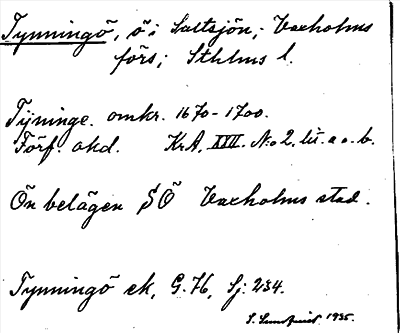 Tynningö, ö i Saltsjön, Vaxholms
förs; Sthlms l.
Tijninge. omkr. 1670-1700.
Förf. okd. KrA, XXII. No 2, lit. a o. b.
Ön belägen SÖ Vaxholms stad.
Tynningö ek, G. 76, Sj: 234.
S. 1935.